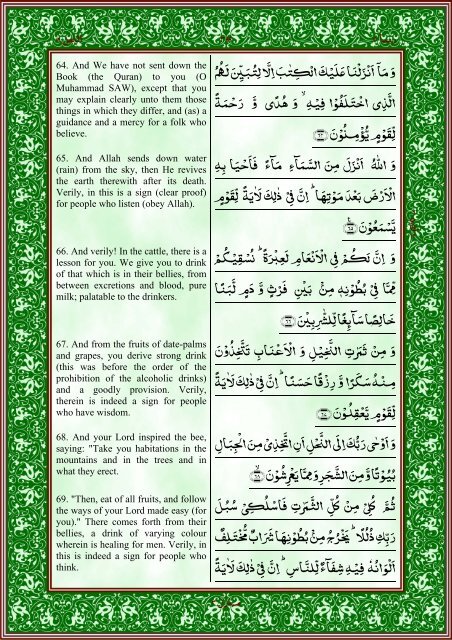 64. And We have not sent down the
Book (the Quran) to you (O
Muhammad SAW), except that you
may explain clearly unto them those
things in which they differ, and (as) a
guidance and a mercy for a folk who
believe.
65. And Allah sends down water
(rain) from the sky, then He revives
the earth therewith after its death.
Verily, in this is a sign (clear proof)
for people who listen (obey Allah).
66. And verily! In the cattle, there is a
lesson for you. We give you to drink
of that which is in their bellies, from
between excretions and blood, pure
milk; palatable to the drinkers.
67. And from the fruits of date-palms
and grapes, you derive strong drink
(this was before the order of the
prohibition of the alcoholic drinks)
and a goodly provision. Verily,
therein is indeed a sign for people
who have wisdom.
68. And your Lord inspired the bee,
saying: "Take you habitations in the
mountains and in the trees and in
what they erect.
69. "Then, eat of all fruits, and follow
the ways of your Lord made easy (for
you)." There comes forth from their
bellies, a drink of varying colour
wherein is healing for men. Verily, in
this is indeed a sign for people who
think.
وَمَاۤ اَنْزَلْنَا عَلَيْكَ الْكِتٰبَ اِلَّا لِتُبَيِّنَ لَهُمُ
الَّذِى اخْتَلَفُوْا فِيْهِ ۙ وَ هُدًى وَّ رَحْمَةً
لِّقَوْمٍ يُّؤْمِنُوْنَ ﴿۶۴﴾
وَ اللّٰهُ اَنْزَلَ مِنَ السَّمَآءِ مَآءً فَاَحْيَا بِهِ
الْاَرْضَ بَعْدَ مَوْتِهَا ؕ اِنَّ فِىْ ذٰلِكَ لَاٰيَةً لِّقَوْمٍ
يَّسْمَعُوْنَ ﴿۶۵﴾
وَ اِنَّ لَكُمْ فِى الْاَنْعَامِ لَعِبْرَةً ؕ نُسْقِيْكُمْ
مِّمَّا فِىْ بُطُوْنِهٖ مِنْۢ بَيْنِ فَرْثٍ وَّ دَمٍ لَّبَنًا
خَالِصًا سَآئِغًا لِّلشّٰرِبِيْنَ ﴿۶۶﴾
وَ مِنْ ثَمَرٰتِ النَّخِيْلِ وَ الْاَعْنَابِ تَتَّخِذُوْنَ
مِنْهُ سَكَرًا وَّ رِزْقًا حَسَنًا ؕ اِنَّ فِىْ ذٰلِكَ لَاٰيَةً
لِّقَوْمٍ يَّعْقِلُوْنَ ﴿۶۷﴾
وَ اَوْحٰى رَبُّكَ اِلَى النَّحْلِ اَنِ اتَّخِذِىْ مِنَ الْجِبَالِ
بُيُوْتًا وَّ مِنَ الشَّجَرِ وَ مِمَّا يَعْرِشُوْنَ ﴿۶۸﴾
ثُمَّ كُلِىْ مِنْ كُلِّ الثَّمَرٰتِ فَاسْلُكِىْ سُبُلَ
رَبِّكِ ذُلُلًا ؕ يَخْرُجُ مِنْۢ بُطُوْنِهَا شَرَابٌ مُّخْتَلِفٌ
اَلْوَانُهٗ فِيْهِ شِفَآءٌ لِّلنَّاسِ ؕ اِنَّ فِىْ ذٰلِكَ لَاٰيَةً